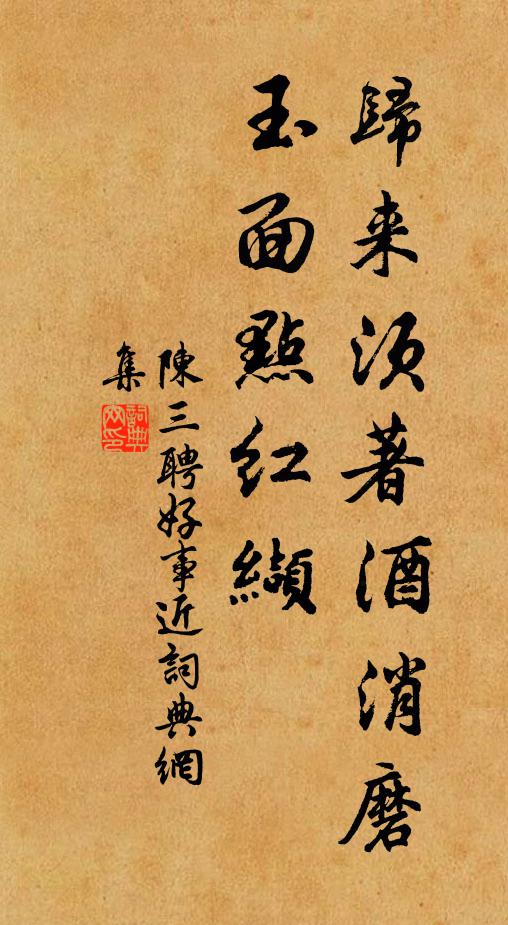 歸来須著酒消磨
玉面點紅纈
陳三聘好事近詞典網
集
詞典网印